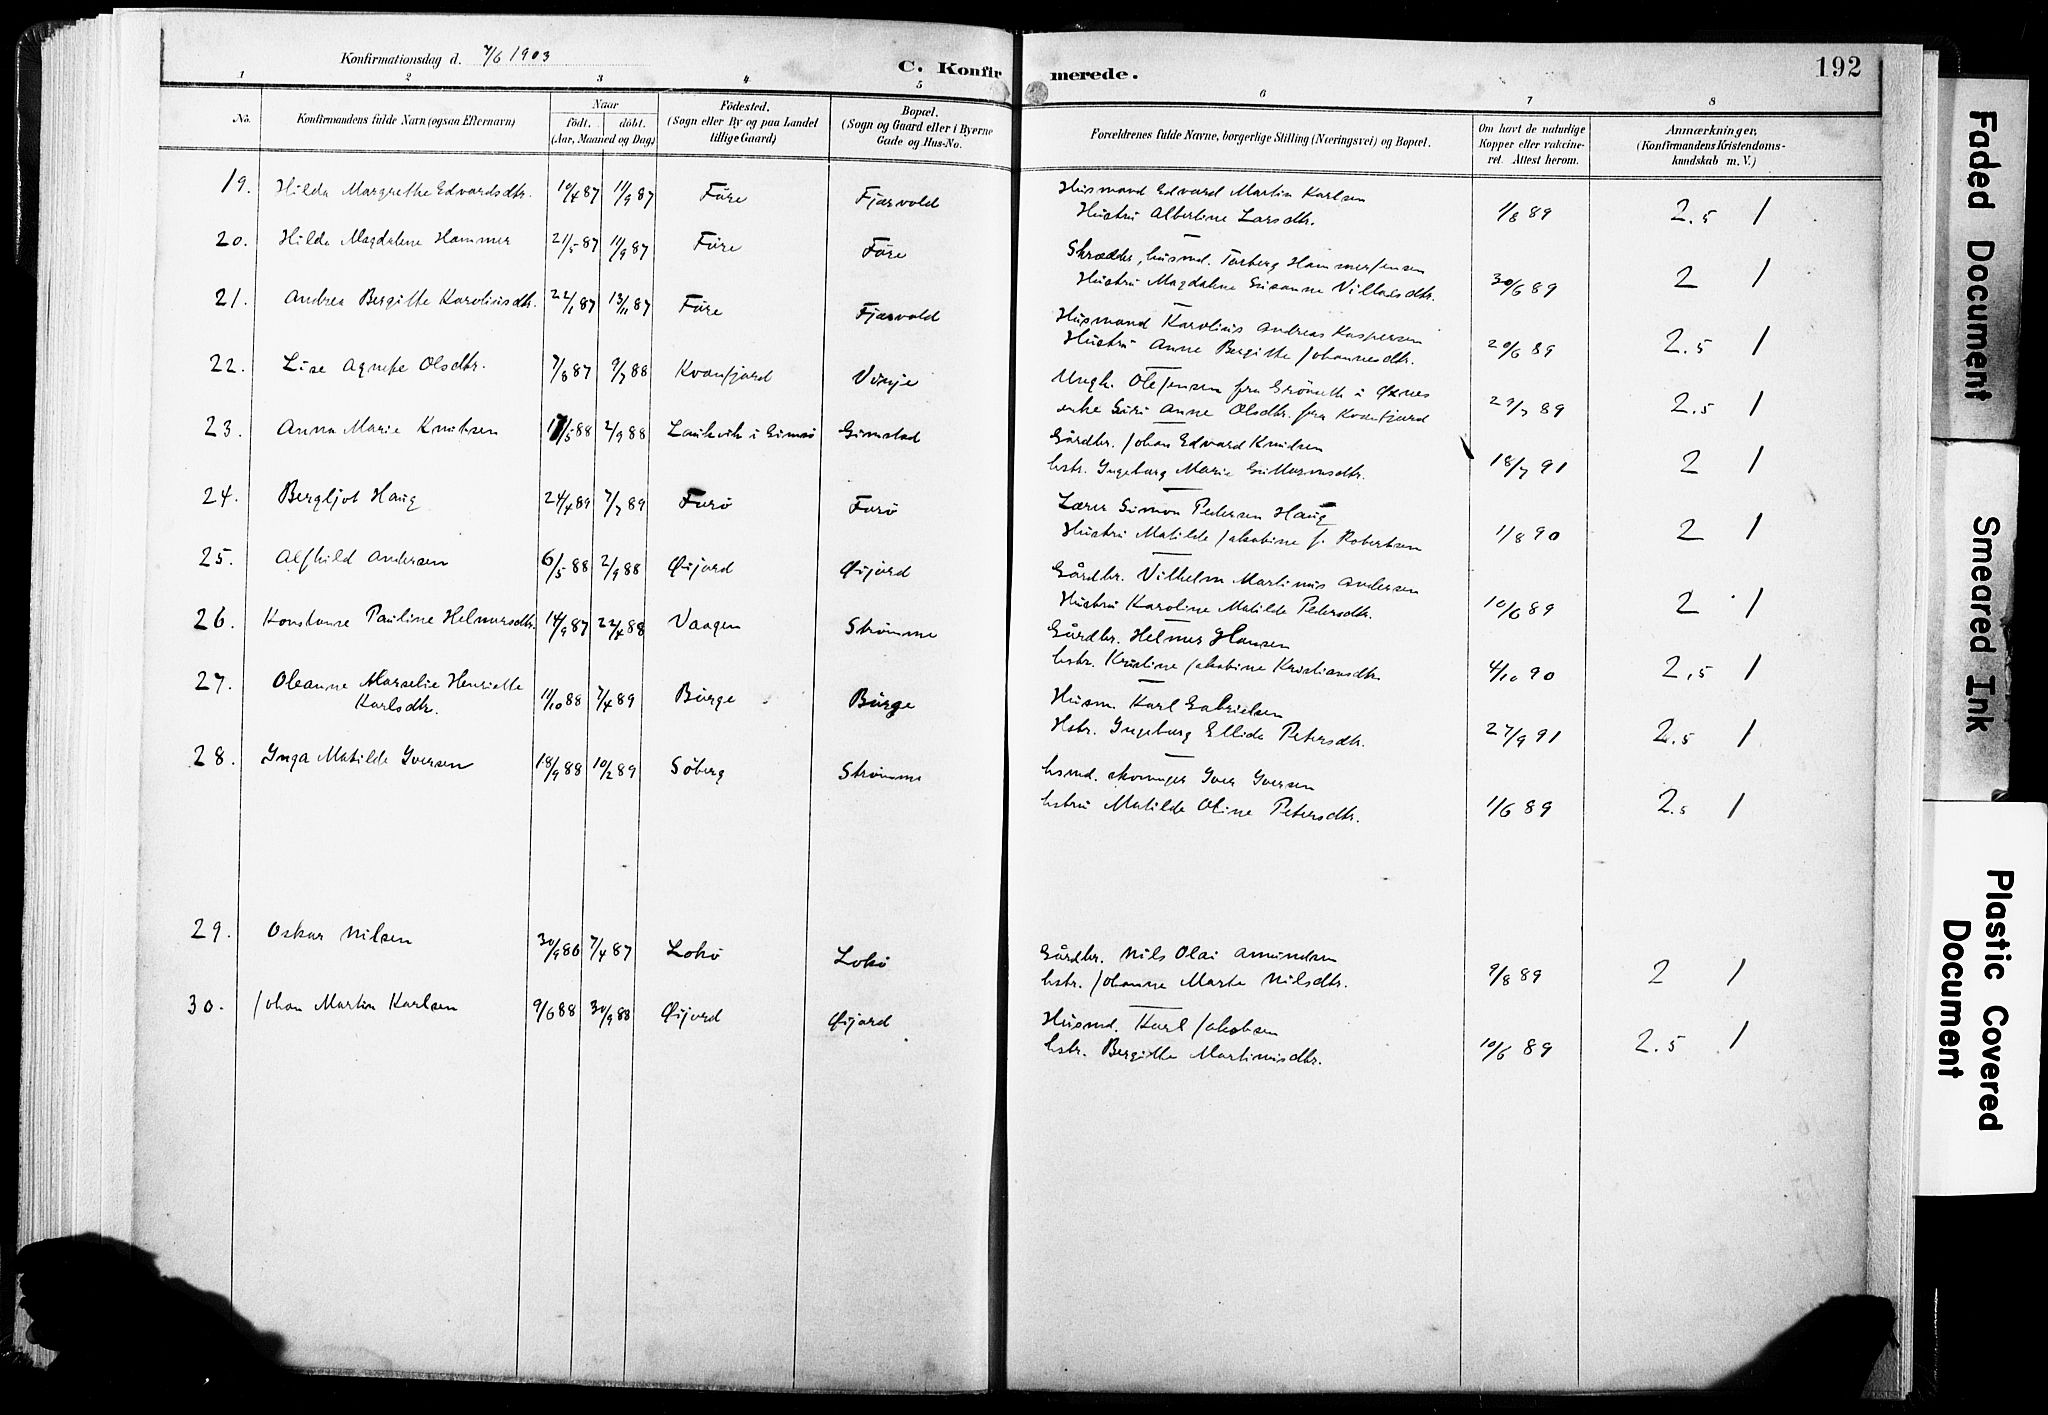 Konfirmationsdag d. 7/6 1903
C. Konfirmerede.
192
1 2 3 4 5 6 7 8
No.
Konfirmandens fulde Navn (ogsaa Efternavn)
Naar
födt. döbt.
(Aar, Maaned og Dag)
Födested.
(Sogn eller By og paa Landet
tillige Gaard)
Bopæl.
(Sogn og Gaard eller i Byerne
Gade og Hus-No.
Forældrenes fulde Navne, borgerlige Stilling (Næringsvei) og Bopæl.
Om havt de naturlige
Kopper eller vakcine-
ret. Attest herom.
Anmærkninger,
(Konfirmandens Kristendoms-
kundskab m. V.)
19. Hilda Margrethe Edvardsdtr. 10/4 87 11/9 87 Före Fjærvold Husmand Edvard Martin Karlsen
Hustru Albertine Larsdtr. 1/8 89 2.5 1
20. Hilda Magdalene Hammer 21/5 87 11/9 87 Före Före Skrædder, husmd. Torberg Hammer Jensen
Hustru Magdalene Susanne Villadsdtr. 30/6 89 2 1
21. Andrea Bergitte Karolinsdtr. 22/1 87 13/11 87 Före Fjærvold Husmand Karolius Andreas Kaspersen
Hustru Anne Bergitte Johannesdtr. 20/6 89 2.5 1
22. Lise Agnete Olsdtr. 7/8 87 9/7 88 Kvæfjord Vinje Ungk. Ole Jensen fra Grönseth i Øxnes
enke Guri Anne Olsdtr. fra Kvæfjord 29/7 89 2.5 1
23. Anna Marie Knutsen 17/5 88 2/9 88 Laukvik i Gimsö Gimstad Gårdbr. Johan Edvard Knudsen
hstr. Ingeborg Marie Guttormsdtr. 18/7 91 2 1
24. Bergljot Haug 24/4 89 7/7 89 Forö Forö Lærer Simon Pedersen Haug
Hustru Matilde Jakobine f. Robertsen 1/8 90 2 1
25. Alfhild Andersen 6/5 88 2/9 88 Øijord Øijord Gårdbr. Vilhelm Martinus Andersen
Hustru Karoline Matilde Petersdtr. 10/6 89 2 1
26. Konstanse Pauline Helmersdtr. 14/9 87 22/4 88 Vaagen Strømme Gårdbr. Helmer Hansen
hstr. Kristine Jakobine Kristiansdtr. 4/10 90 2,5 1
27. Oleanne Marselie Henriette
Karlsdtr. 11/10 88 7/4 89 Börge Börge Husm. Karl Gabrielsen
Hstr. Ingeborg Ellida Petersdtr. 27/9 91 2.5 1
28. Inga Matilde Iversen 18/9 88 10/2 89 Söberg Strømme hsmd. Iver Iversen
hstru Matilde Oline Petersdtr. 1/6 89 2.5 1
29. Oskar Nilsen 30/9 86 7/4 87 Lokö Lokö Gårdbr. Nils Olai Amundsen
hstr. Johanne Marte Nilsdtr. 9/8 89 2 1
30. Johan Martin Karlsen 9/6 88 30/9 88 Øijord Øijord Husmd. Karl Jakobsen
hstr. Bergitte Martinusdtr. 10/6 89 2.5 1
Faded Document
Smeared Ink
Plastic Covered
Document